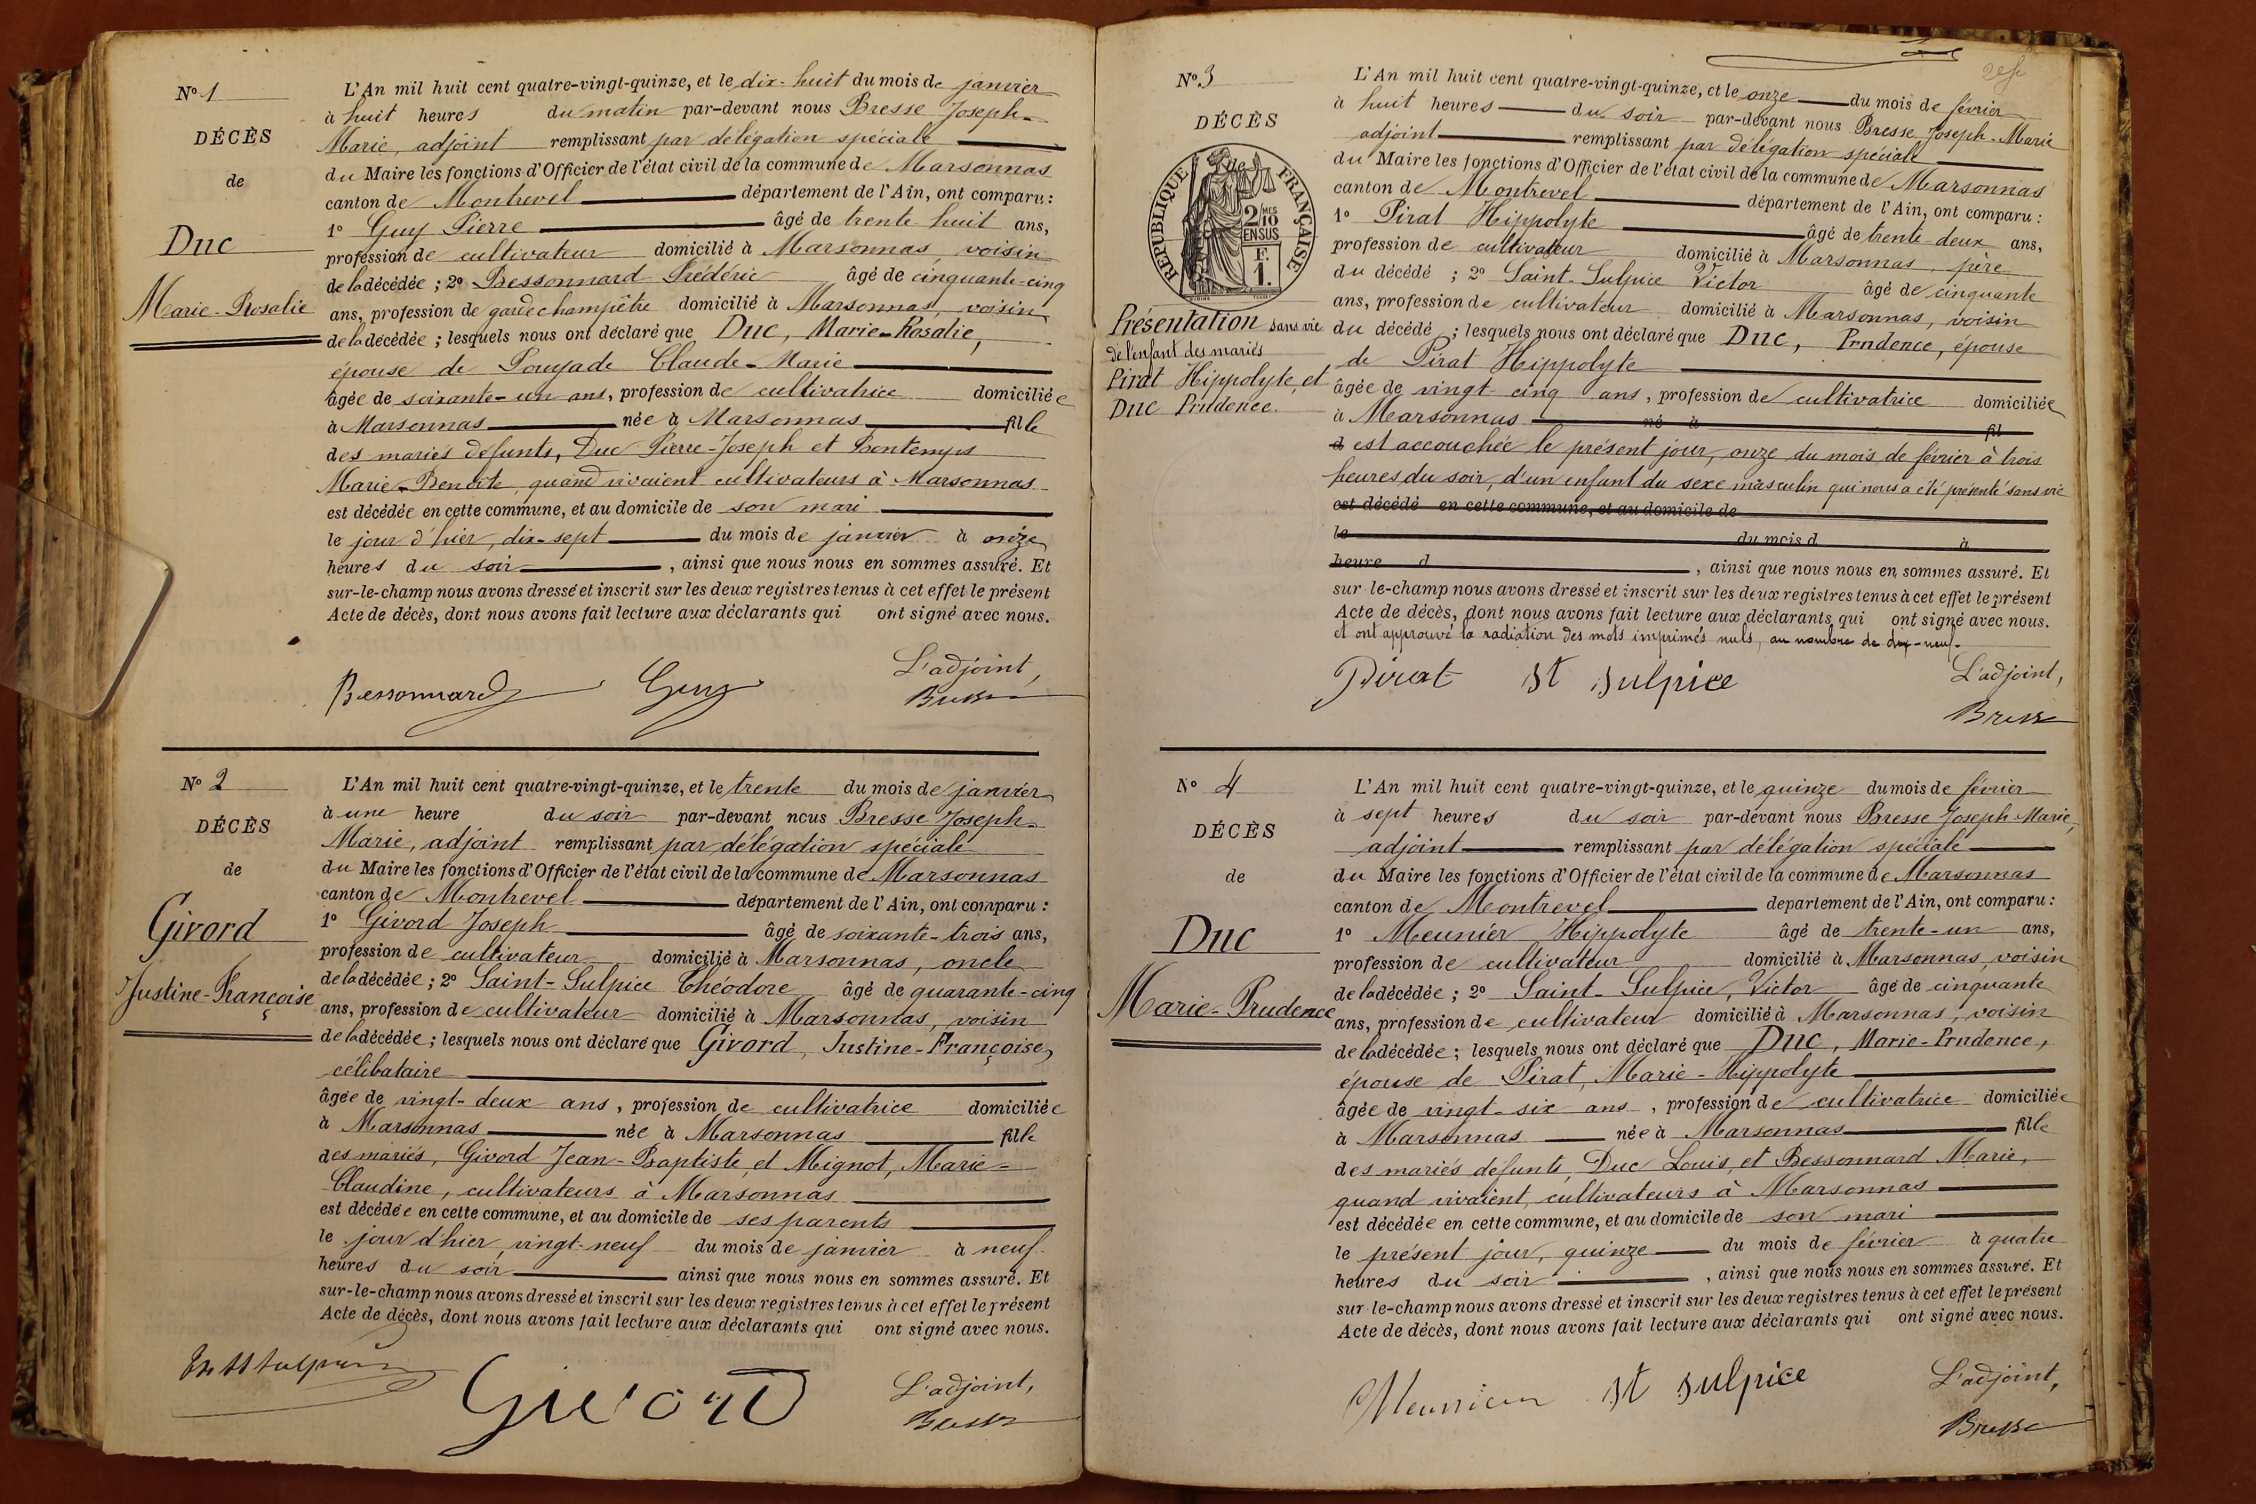 N° 1
DÉCÈS
de
Duc
Marie-Rosalie
L'An mil huit cent quatre-vingt-quinze, et le dix-huit du mois de janvier
à huit heures du matin par-devant nous Bresse Joseph-
Marie, adjoint remplissant par délégation spéciale
du Maire les fonctions d'Officier de l'état civil de la commune de Marsonnas
canton de Montrevel département de l'Ain, ont comparu :
1° Guy Pierre âgé de trente huit ans,
profession de cultivateur domicilié à Marsonnas, voisin
de la décédée ; 2° Bessonnard Frédéric âgé de cinquante-cinq
ans, profession de garde champêtre domicilié à Marsonnas, voisin
de la décédée ; lesquels nous ont déclaré que Duc, Marie-Rosalie,
épouse de Pouyade Claude-Marie
âgée de soixante-un ans, profession de cultivatrice domiciliée
à Marsonnas née à Marsonnas fille
des mariés défunts, Duc Pierre-Joseph et Bontemps
Marie-Benoîte, quand vivaient cultivateurs à Marsonnas
est décédée en cette commune, et au domicile de son mari
le jour d'hier, dix-sept du mois de janvier à onze
heures du soir, ainsi que nous nous en sommes assuré. Et
sur-le-champ nous avons dressé et inscrit sur les deux registres tenus à cet effet le présent
Acte de décès, dont nous avons fait lecture aux déclarants qui ont signé avec nous.
L'adjoint,
Bessonnard Guy Bresse
N° 2
DÉCÈS
de
Givord
Justine-Françoise
L'An mil huit cent quatre-vingt-quinze, et le trente du mois de janvier
à une heure du soir par-devant nous Bresse Joseph-
Marie, adjoint remplissant par délégation spéciale
du Maire les fonctions d'Officier de l'état civil de la commune de Marsonnas
canton de Montrevel département de l'Ain, ont comparu :
1° Givord Joseph âgé de soixante-trois ans,
profession de cultivateur domicilié à Marsonnas, oncle
de la décédée ; 2° Saint-Sulpice Théodore âgé de quarante-cinq
ans, profession de cultivateur domicilié à Marsonnas, voisin
de la décédée ; lesquels nous ont déclaré que Givord, Justine-Françoise,
célibataire
âgée de vingt-deux ans, profession de cultivatrice domiciliée
à Marsonnas née à Marsonnas fille
des mariés, Givord Jean-Baptiste, et Mignot, Marie-
Claudine, cultivateurs à Marsonnas
est décédée en cette commune, et au domicile de ses parents
le jour d'hier, vingt-neuf du mois de janvier à neuf
heures du soir ainsi que nous nous en sommes assuré. Et
sur-le-champ nous avons dressé et inscrit sur les deux registres tenus à cet effet le présent
Acte de décès, dont nous avons fait lecture aux déclarants qui ont signé avec nous.
L'adjoint,
Givord Bresse
N° 3
DÉCÈS
de
RÉPUBLIQUE FRANÇAISE
2/10 MES
EN SUS
F.
1.
Présentation sans vie
de l'enfant des mariés
Pirat Hippolyte, et
Duc Prudence.
L'An mil huit cent quatre-vingt-quinze, et le onze du mois de février
à huit heures du soir par-devant nous Bresse Joseph-Marie
adjoint remplissant par délégation spéciale
du Maire les fonctions d'Officier de l'état civil de la commune de Marsonnas
canton de Montrevel département de l'Ain, ont comparu :
1° Pirat Hippolyte âgé de trente-deux ans,
profession de cultivateur domicilié à Marsonnas, père
du décédé ; 2° Saint-Sulpice Victor âgé de cinquante
ans, profession de cultivateur domicilié à Marsonnas, voisin
du décédé ; lesquels nous ont déclaré que Duc, Prudence, épouse
de Pirat Hippolyte
âgée de vingt-cinq ans, profession de cultivatrice domiciliée
à Marsonnas né à fil
d est accouchée le présent jour, onze du mois de février à trois
heures du soir, d'un enfant du sexe masculin qui nous a été présenté sans vie
est décédé en cette commune, et au domicile de
le du mois d à
heure d, ainsi que nous nous en sommes assuré. Et
sur-le-champ nous avons dressé et inscrit sur les deux registres tenus à cet effet le présent
Acte de décès, dont nous avons fait lecture aux déclarants qui ont signé avec nous.
et ont approuvé la radiation des mots imprimés nuls, au nombre de dix-neuf.
L'adjoint,
Pirat St Sulpice
Bresse
N° 4
DÉCÈS
de
Duc
Marie-Prudence
L'An mil huit cent quatre-vingt-quinze, et le quinze du mois de février
à sept heures du soir par-devant nous Bresse Joseph-Marie,
adjoint remplissant par délégation spéciale
du Maire les fonctions d'Officier de l'état civil de la commune de Marsonnas
canton de Montrevel département de l'Ain, ont comparu :
1° Meunier Hippolyte âgé de trente-un ans,
profession de cultivateur domicilié à Marsonnas, voisin
de la décédée ; 2° Saint-Sulpice, Victor âgé de cinquante
ans, profession de cultivateur domicilié à Marsonnas, voisin
de la décédée ; lesquels nous ont déclaré que Duc, Marie-Prudence,
épouse de Pirat, Marie-Hippolyte
âgée de vingt-six ans, profession de cultivatrice domiciliée
à Marsonnas née à Marsonnas fille
des mariés défunts, Duc Louis, et Bessonnard Marie,
quand vivaient, cultivateurs à Marsonnas
est décédée en cette commune, et au domicile de son mari
le présent jour, quinze du mois de février à quatre
heures du soir, ainsi que nous nous en sommes assuré. Et
sur-le-champ nous avons dressé et inscrit sur les deux registres tenus à cet effet le présent
Acte de décès, dont nous avons fait lecture aux déclarants qui ont signé avec nous.
L'adjoint,
Meunier St Sulpice
Bresse